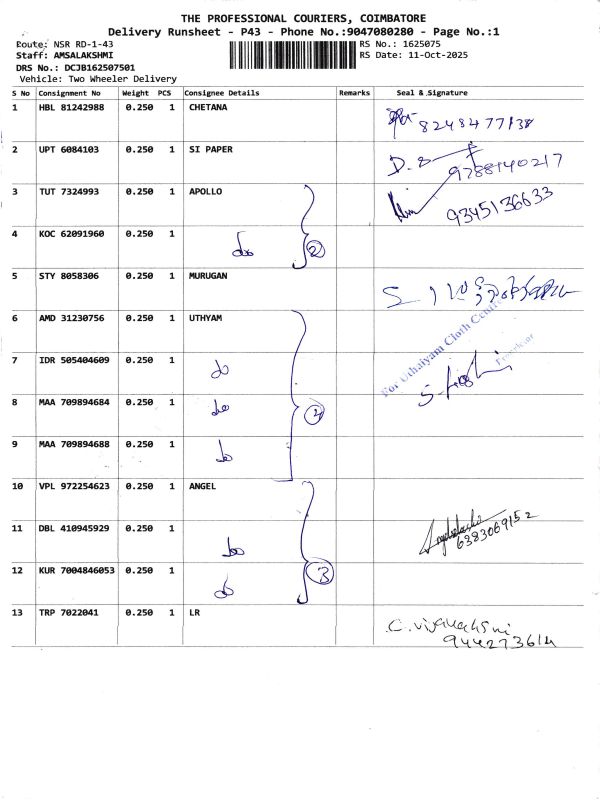 THE PROFESSIONAL COURIERS, COIMBATORE
Delivery Runsheet - P43 - Phone No.:9047080280 - Page No.:1
Route: NSR RD-1-43
RS No.: 1625075
Staff: AMSALAKSHMI
RS Date: 11-Oct-2025
DRS No.: DCJB162507501
Vehicle: Two Wheeler Delivery
S No Consignment No Weight PCS Consignee Details Remarks Seal & Signature
1 HBL 81242988 0.250 1 CHETANA 8248477138
2 UPT 6084103 0.250 1 SI PAPER 9788140217
3 TUT 7324993 0.250 1 APOLLO 9345136633
4 KOC 62091960 0.250 1 do 2
5 STY 8058306 0.250 1 MURUGAN
6 AMD 31230756 0.250 1 UTHYAM
For Uthaiyam Cloth Centre
Proprietor
7 IDR 505404609 0.250 1 do
8 MAA 709894684 0.250 1 do 4
9 MAA 709894688 0.250 1 do
10 VPL 972254623 0.250 1 ANGEL
11 DBL 410945929 0.250 1 do 6383069152
12 KUR 7004846053 0.250 1 do 3
13 TRP 7022041 0.250 1 LR C. Vijayalakshmi
9442273614